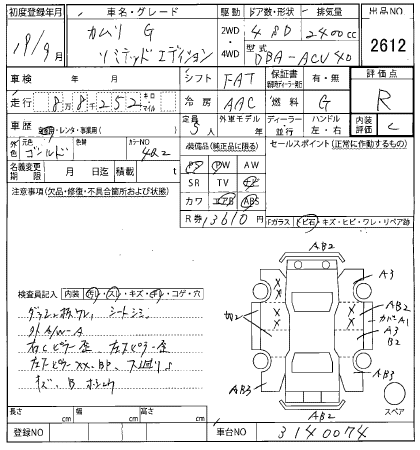 初度登録年月 車名・グレード 駆動 ドア数・形状 排気量 出品NO.
19/9月 カムリ G 2WD・4WD 4 SD 2400cc 2612
リミテッドエディション 型式 DBA-ACV40
車検 年 月 シフト FAT 保証書 有・無 評価点
走行 8万8千252 キロ マイル 冷房 AAC 燃料 G R
車歴 自家用・レンタ・事業用( ) 定員 5人 外車モデル 年 ディーラー 並行 ハンドル 左・右 内装評価 C
外色 元色 ゴールド 色替 カラーNO 4R2
装備品(純正品に限る) セールスポイント(正常に作動するもの)
名義変更期限 月 日迄 積載 t
PS PW AW
SR TV ナビ
カワ エアB ABS
R券 13610円
注意事項(欠品・修復・不具合箇所および状態)
Fガラス トビ石・キズ・ヒビ・ワレ・リペア跡
検査員記入 内装 ヨゴレ・スレ・キズ・ヤレ・コゲ・穴
シートシミ
外A/W-A
右Cピラー歪
キズ、B
AB2
A3
切2
AB2
カバーA1
A3
B2
AB3
AB3
AB2
スペア
長さ cm 幅 cm 高さ cm
登録NO 車台NO 3140074